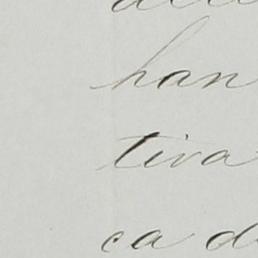 han
tiva
ca d